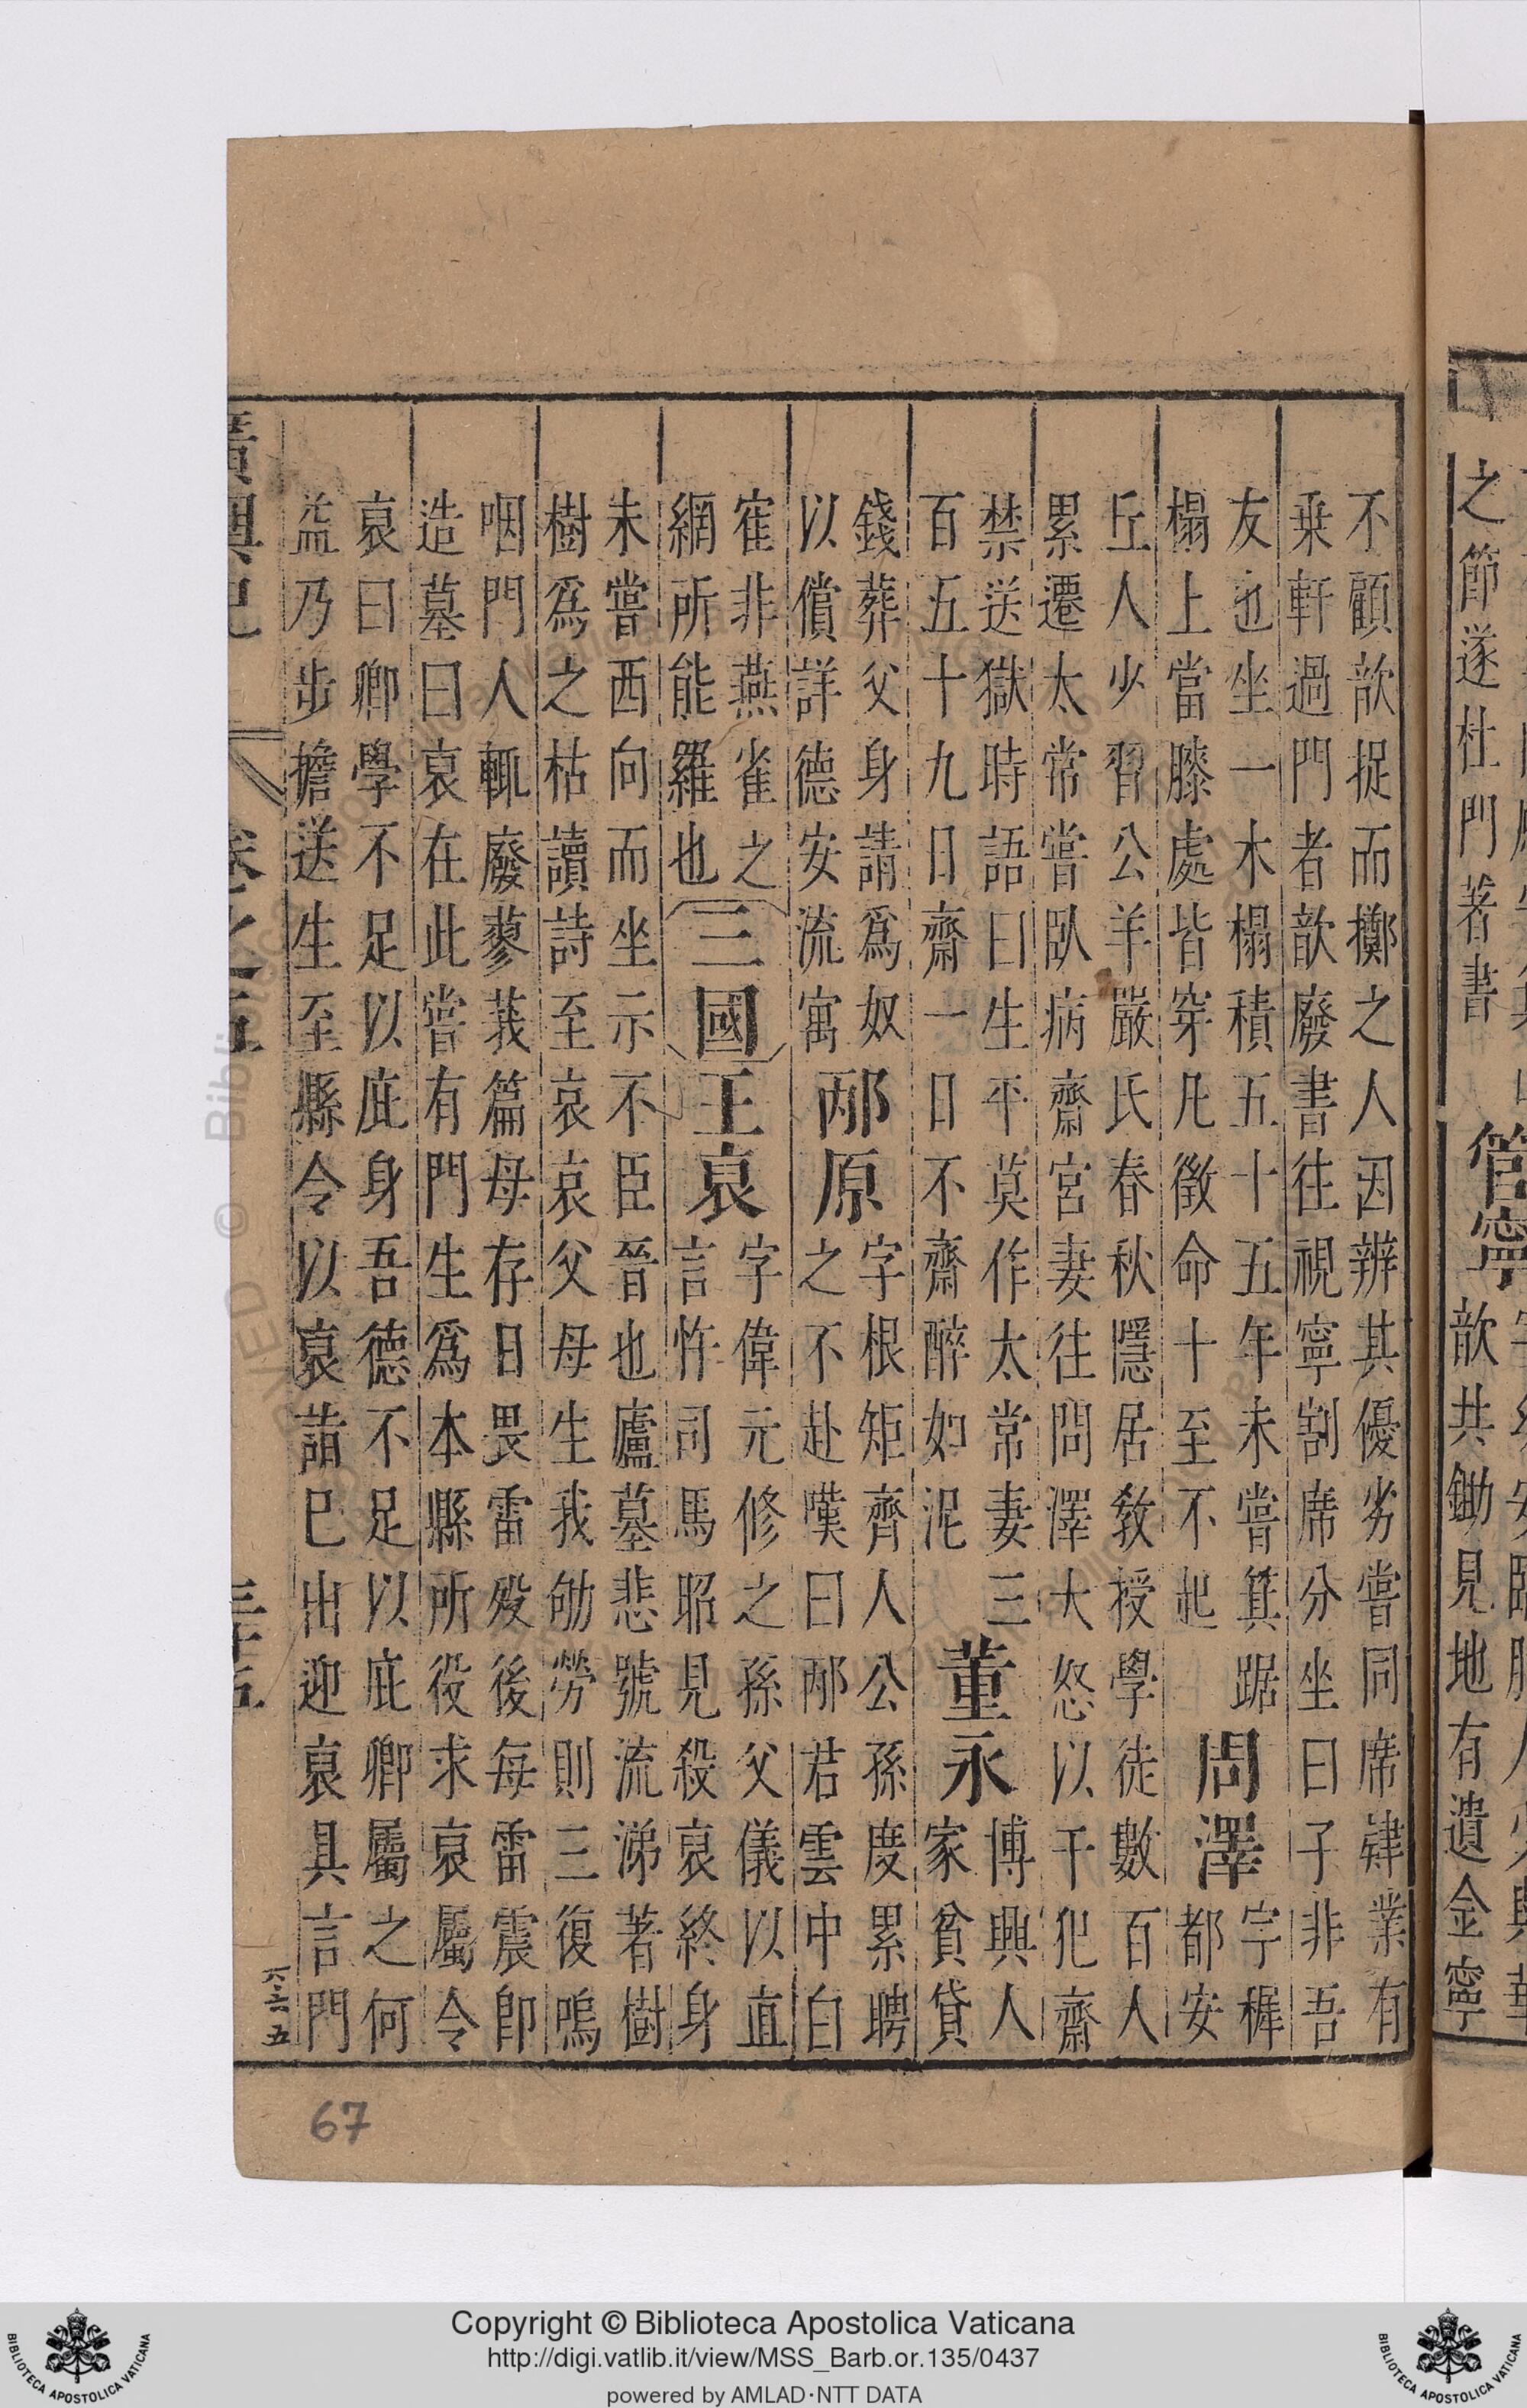 之節遂杜門著書
管寧
歆共鋤見地有遺金寧
不顧歆捉而擲之人因辨其優劣嘗同席肄業有
乗軒過門者歆廢書往視寧割席分坐曰子非吾
友也坐一木榻積五十五年未嘗箕踞
榻上當膝處皆穿凡徵命十至不起
周澤
字穉
都安
丘人少習公羊嚴氏春秋隱居教授學徒數百人
累遷太常嘗臥病齋宮妻往問澤大怒以干犯齋
禁送獄時語曰生平莫作太常妻三
百五十九日齋一日不齋醉如泥
董永
博興人
家貧貸
錢葬父身請爲奴
以償詳德安流寓
邴原
字根矩齊人公孫度累聘
之不赴嘆曰邴君雲中白
寉非燕雀之
網所能羅也
三國
王裒
字偉元修之孫父儀以直
言忤司馬昭見殺裒終身
未嘗西向而坐示不臣晉也廬墓悲號流涕著樹
樹爲之枯讀詩至哀哀父母生我劬勞則三復嗚
咽門人輒廢蓼莪篇母存日畏雷殁後每雷震卽
造墓曰裒在此嘗有門生爲本縣所役求裒屬令
裒曰卿學不足以庇身吾德不足以庇卿屬之何
益乃步擔送生至縣令以裒詣已出迎裒具言門
廣輿記
卷之五
三十五
六六五
67
Copyright © Biblioteca Apostolica Vaticana
http://digi.vatlib.it/view/MSS_Barb.or.135/0437
powered by AMLAD·NTT DATA
BIBLIOTECA APOSTOLICA VATICANA
BIBLIOTECA APOSTOLICA VATICANA